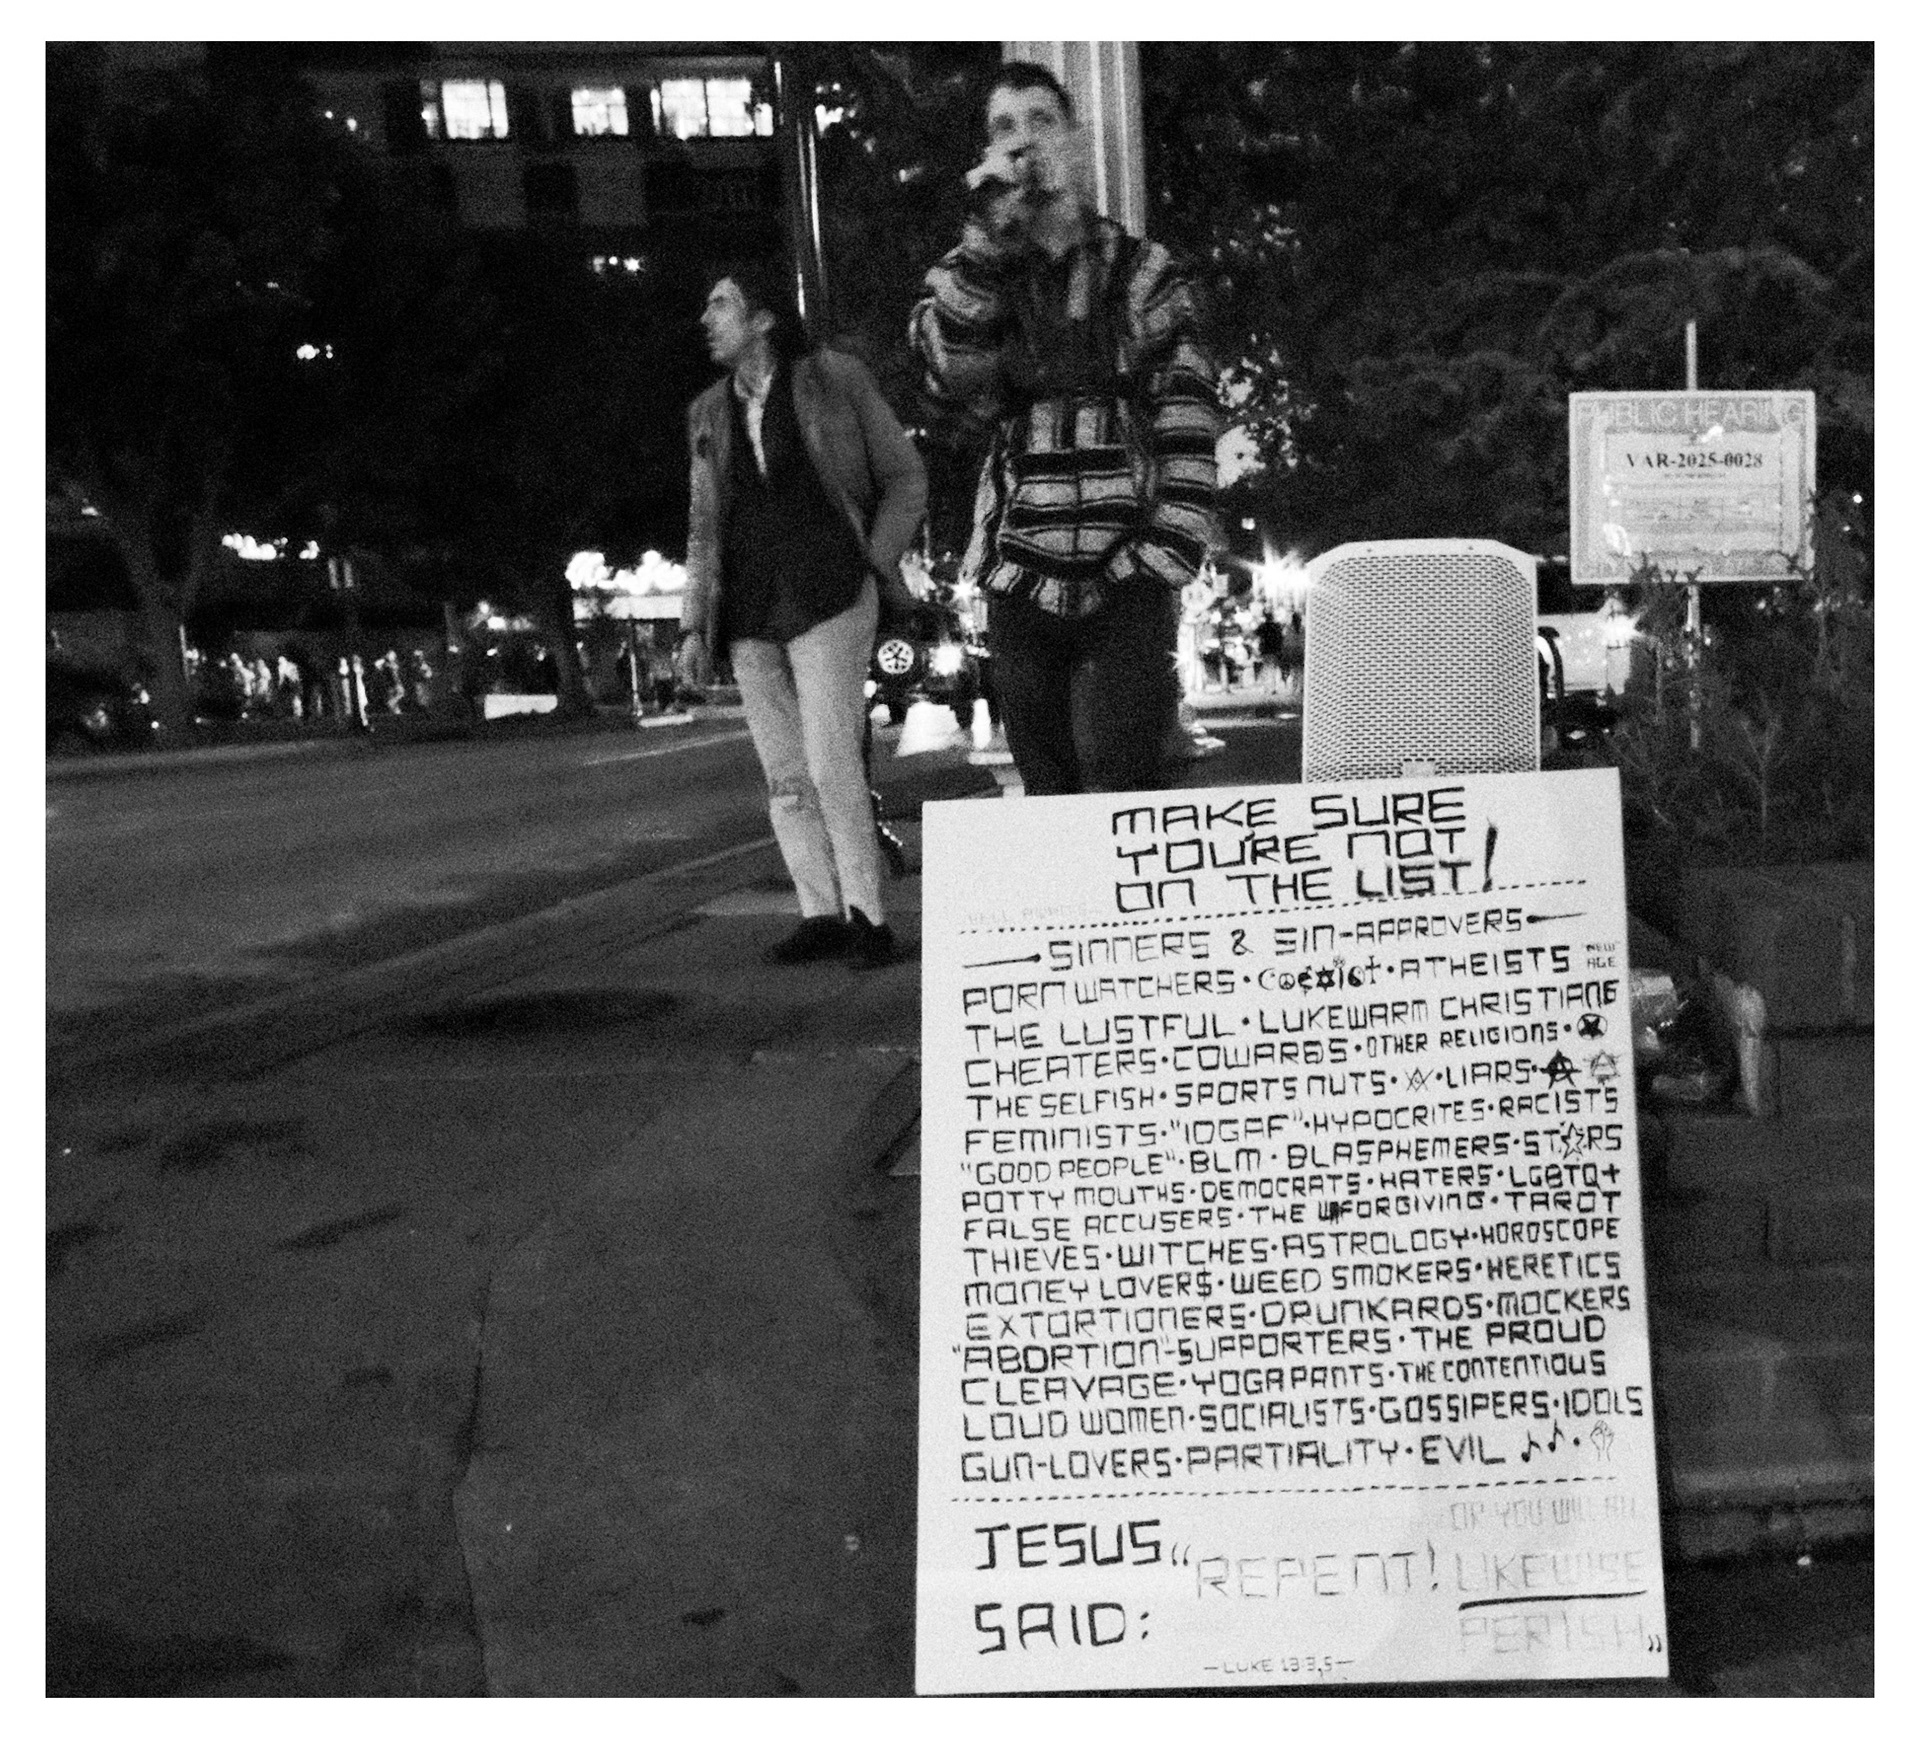 PUBLIC HEARING
VAR-2025-0028
MAKE SURE
YOU'RE NOT
ON THE LIST!
SINNERS & SIN-APPROVERS
PORN WATCHERS • COEXIST • ATHEISTS NEW AGE
THE LUSTFUL • LUKEWARM CHRISTIANS
CHEATERS • COWARDS • OTHER RELIGIONS •
THE SELFISH • SPORTS NUTS • • LIARS •
FEMINISTS • "IDGAF" • HYPOCRITES • RACISTS
"GOOD PEOPLE" • BLM • BLASPHEMERS • ST☆RS
POTTY MOUTHS • DEMOCRATS • HATERS • LGBTQ+
FALSE ACCUSERS • THE UNFORGIVING • TAROT
THIEVES • WITCHES • ASTROLOGY • HOROSCOPE
MONEY LOVER$ • WEED SMOKERS • HERETICS
EXTORTIONERS • DRUNKARDS • MOCKERS
"ABORTION"-SUPPORTERS • THE PROUD
CLEAVAGE • YOGA PANTS • THE CONTENTIOUS
LOUD WOMEN • SOCIALISTS • GOSSIPERS • IDOLS
GUN-LOVERS • PARTIALITY • EVIL ♪♪ •
JESUS
SAID:
"REPENT! OR YOU WILL ALL
LIKEWISE
PERISH"
— LUKE 13:3,5 —